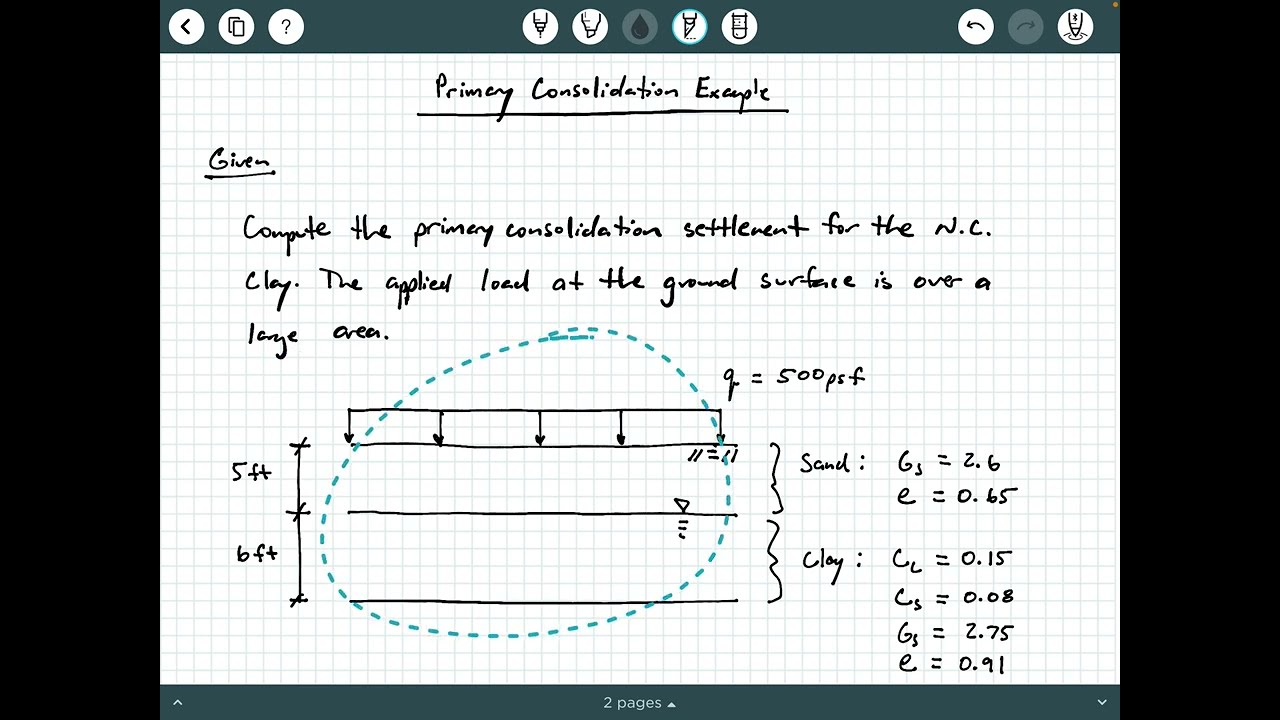 ?
Primary Consolidation Example
Given
Compute the primary consolidation settlement for the N.C.
Clay. The applied load at the ground surface is over a
large area.
q = 500psf
5ft
Sand: Gs = 2.6
e = 0.65
6ft
Clay: Cc = 0.15
Cs = 0.08
Gs = 2.75
e = 0.91
2 pages